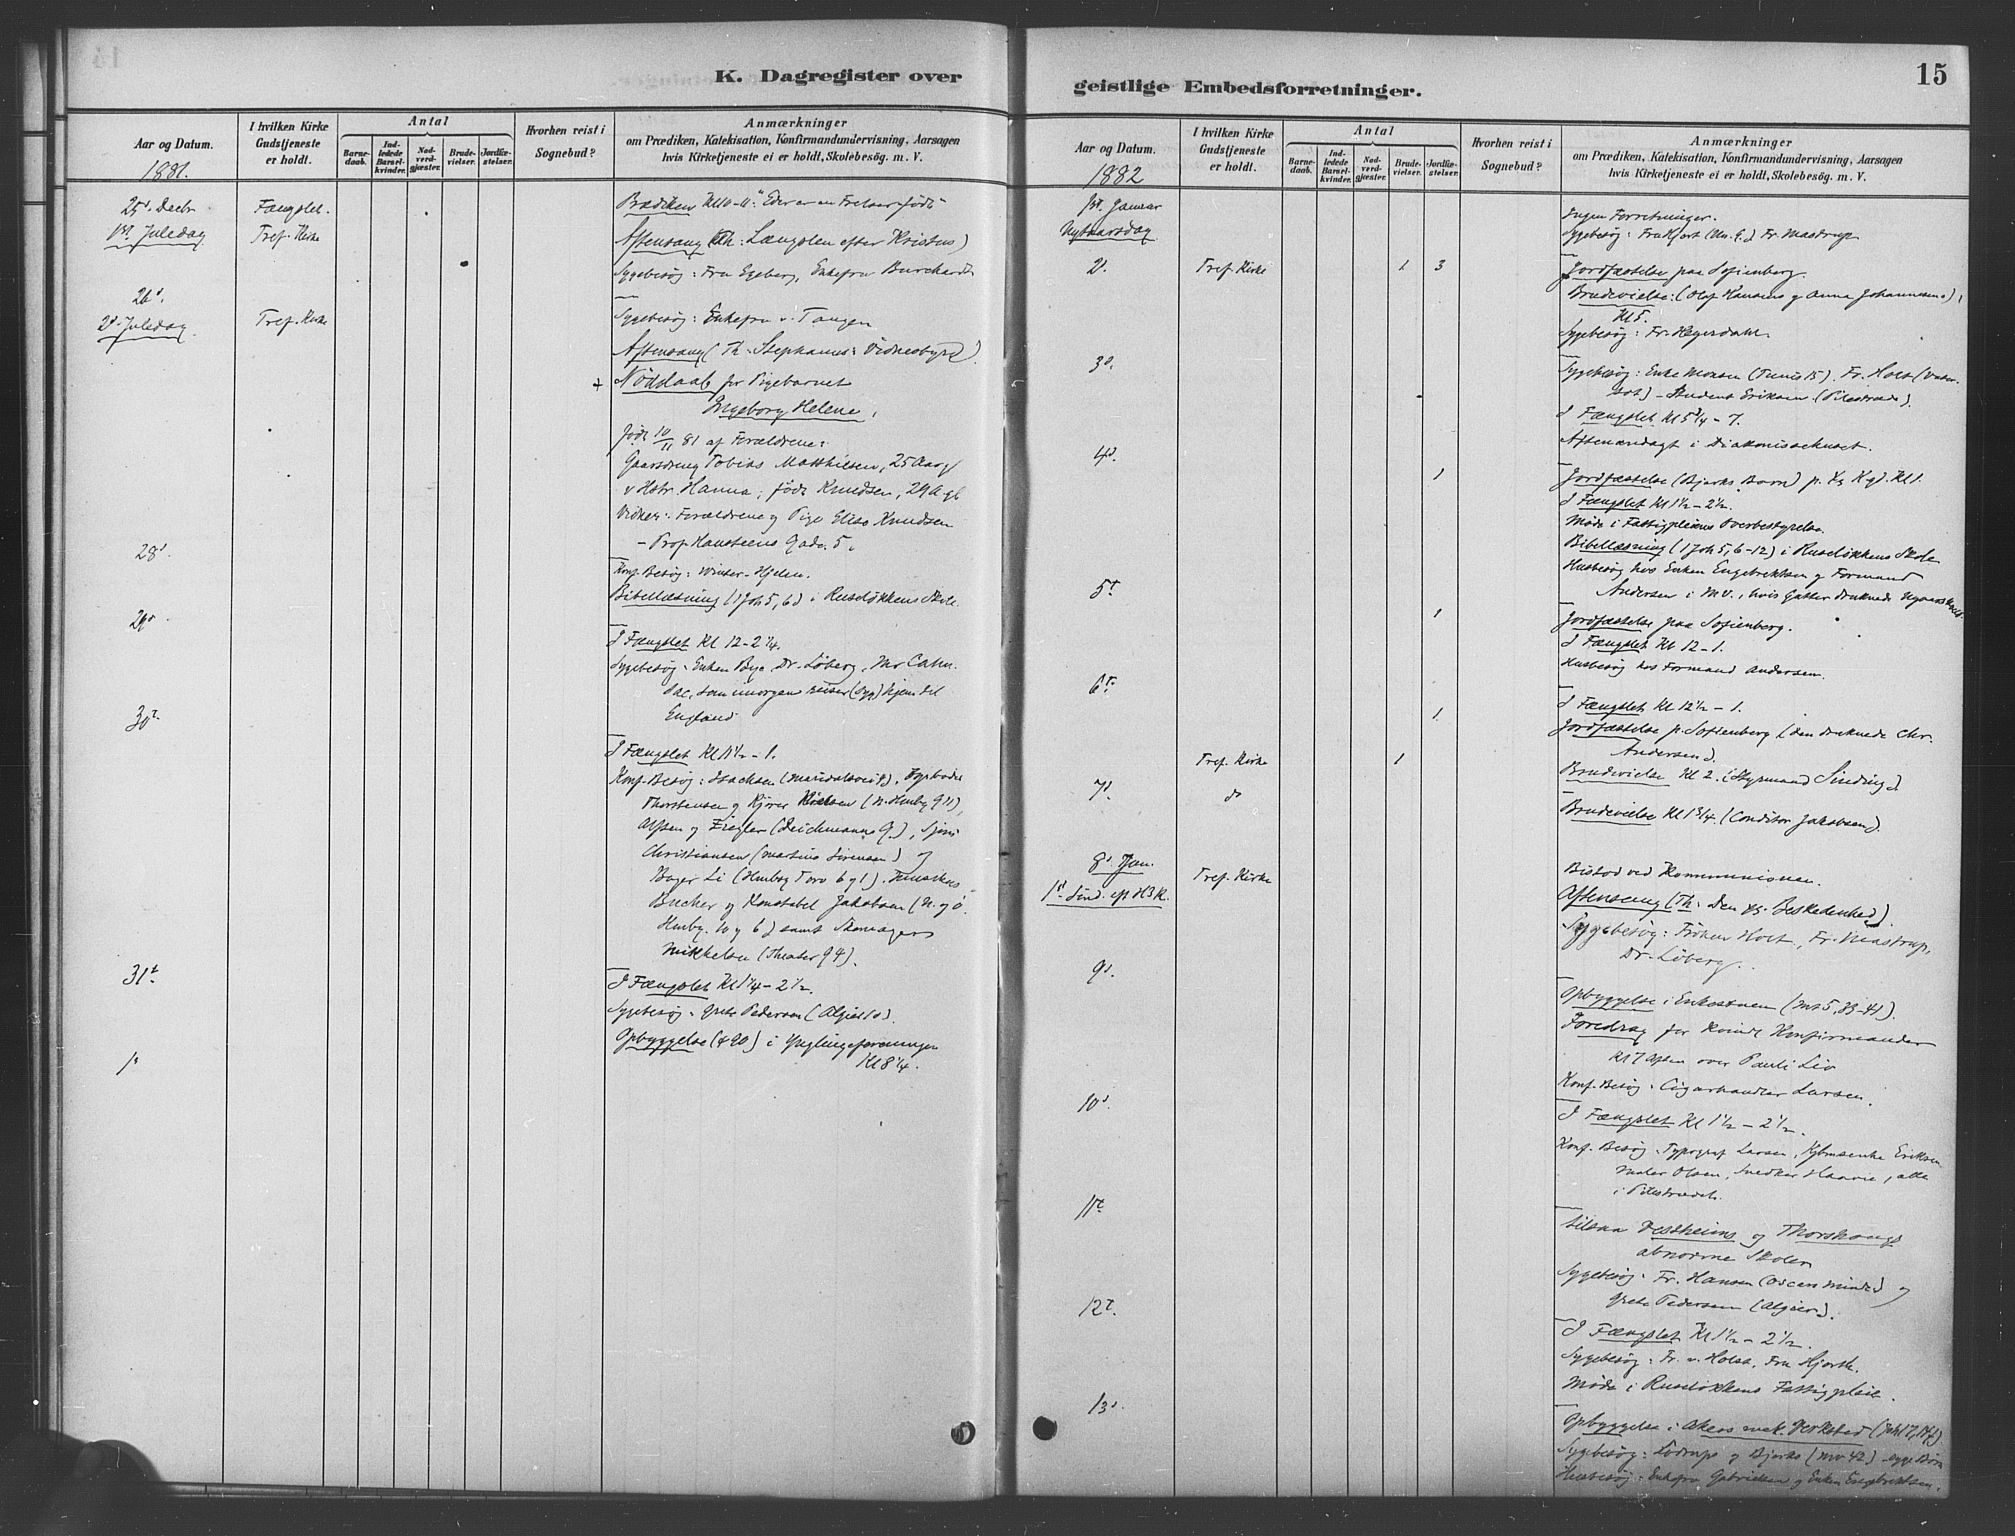 K. Dagregister over
Aar og Datum.
I hvilken Kirke
Gudstjeneste
er holdt.
Antal
Barne-
daab.
Ind-
ledede
Barsel-
kvinder.
Nad-
verd-
gjæster.
Brude-
vielser.
Jordfæ-
stelser.
Hvorhen reist i
Sognebud?
Anmærkninger
om Prædiken, Katekisation, Konfirmandundervisning, Aarsagen
hvis Kirketjeneste ei er holdt, Skolebesøg. m. V.
1881.
25d. Decbr Fængslet.
1st Juledag Tref. Kirke
Kl 10-11: "Eder er en Frelser født"
Aftensang (Th: Længslen efter Kristus)
Sygebesøg: Fru Egeberg, Enkefru Burchardt
26d.
2d Juledag Tref. Kirke
Sygebesøg: Enkefru v. Tangen
Aftensang (Th. Stephanus: Vidnesbyrd).
+ Nöddaab for Pigebarnet
Ingeborg Helene,
født 10/11 81 af Forældrene:
Gaardsdreng Tobias Matthisen, 25 Aar gl
v Hstr. Hanna, født Knudsen, 29 A gl.
Vidner: Forældrene og Pige Elise Knudsen
- Prof. Hansteens Gade 5.
28d.
Konf. Besøg: Winter-Hjelm.
Bibellæsning (1 Joh 5, 6) i Ruseløkkens Skole.
29d.
I Fængslet Kl 12-2 1/4.
Sygebesøg. Enken Bye, Dr. Løberg, Mr Calm.
som imorgen reiser (syg) hjem til
England
30t.
I Fængslet Kl 11 1/2 - 1.
Konf. Besøg: Isachsen (Maridalsvei 8),
Thorstensen og (N. Hmbg 9 11),
Alfsen og Ziegler (Deichmanns G.),
Christiansen (Martins Sørensen) og
Bager Li (Hmbg Torv 6 og 1).
Bucher og Konstabel Jakobsen (N. og Ö.
Hmbg. 10 og 6) samt Skomager
Mikkelsen (Theater G 4).
31t.
I Fængslet Kl 1 1/4 - 2 1/2.
Sygebesøg. Grete Pedersen (Algier 10).
Opbyggelse (Ψ 90) i Ynglingeforeningen
Kl 8 1/4.
1s
geistlige Embedsforretninger.
15
Aar og Datum.
I hvilken Kirke
Gudstjeneste
er holdt.
Antal
Barne-
daab.
Ind-
ledede
Barsel-
kvinder.
Nad-
verd-
gjæster.
Brude-
vielser.
Jordfæ-
stelser.
Hvorhen reist i
Sognebud?
Anmærkninger
om Prædiken, Katekisation, Konfirmandundervisning, Aarsagen
hvis Kirketjeneste ei er holdt, Skolebesøg. m. V.
1882
1st. Januar Ingen Forretninger.
Nytaarsdag Sygebesøg: Fr. Mastrup
2d. Tref. Kirke 1 3 Jordfæstelse paa Sofienberg.
Brudevielse: (Olaf Hansens og Anna Johannsens),
Kl 5.
Sygebesøg: Fr. Heyerdahl.
3d.
Sygebesøg: Enke Monsen (Tunis 15). Fr. Holst
- Student Eriksen (Pilestræde).
I Fængslet Kl 5 3/4 - 7.
Aftenandagt i Diakonissehuset.
4d. 1 Jordfæstelse (Bjerks Barn) p. Kl 1.
I Fængslet Kl 1 1/2 - 2 1/2.
Møde i Fattigpleiens Overbestyrelse.
Bibellæsning (1 Joh 5, 6-12) i Ruseløkkens Skole
Husbesøg hos Enken Engebrektsen og Formand
Andersen i M.V., hvis Gutter druknede
5t 1 Jordfæstelse paa Sofienberg.
I Fængslet Kl 12 - 1.
Husbesøg hos Formand Andersen.
6t.
I Fængslet Kl 12 1/2 - 1.
1. Jordfæstelse p. Sofienberg (den druknede Chr.
Andersen).
Tref. Kirke 1 Brudevielse Kl 2. (Styrmand Sinding)
7d. do Brudevielse Kl 1 3/4. (Conditor Jakobsen).
8d. Jan.
1st Sønd. eft H3K. Tref. Kirke Bistod ved Kommunionen.
Aftensang (Th: Den Beskedenhed).
Sygebesøg: Frøken Holst, Fr. Mastrup,
Dr. Løberg.
9d.
Opbyggelse i Enkestuen (Mt 5, 33-41).
Foredrag for Kvindl Konfirmander
Kl 7 Aften over Pauli Liv
Konf. Besøg. Cigarhandler Larsen.
10d.
I Fængslet Kl 1 1/2 - 2 1/2.
Konf. Besøg. Typograf Larsen, Eriksen
Maler Olsen, Snedker Haavie, alle
i Pilestrædet.
11t.
Vestheims og Thorshaugs
abnorme Skoler
Sygebesøg. Fr. Hansen (Oscars Minde) og
Grete Pedersen (Algier).
12t.
I Fængslet Kl 1 1/2 - 2 1/2.
Sygebesøg: Fr. v. Holst, Fru Hjorth.
Møde i Ruseløkkens Fattigpleie.
13d.
Opbyggelse i Akers mek. Verksted
Sygebesøg: og Bjerks (MV 42)
Husbesøg: Enkefru Gabrielsen og Enken Engebrektsen.